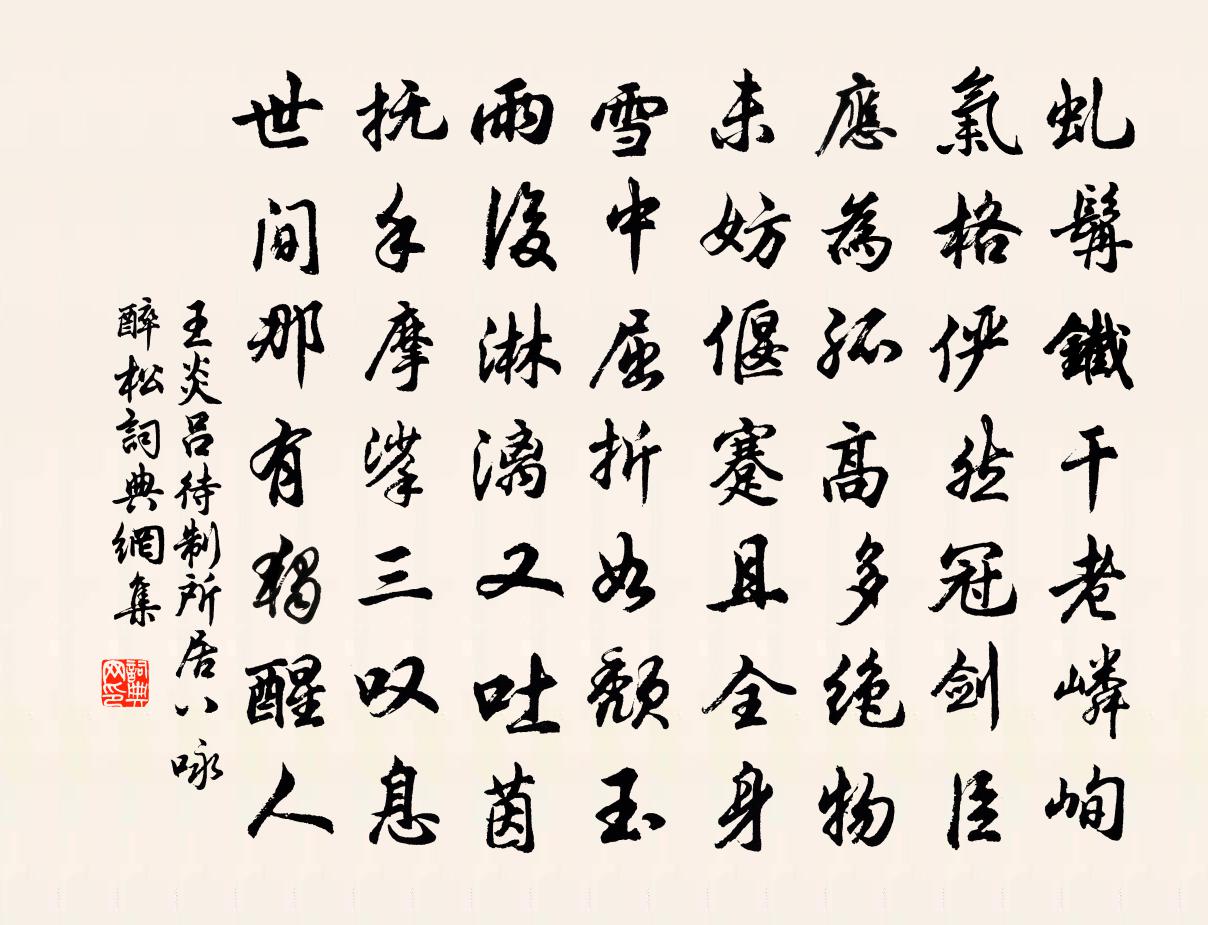 虬髯鐵干老嶙峋
氣格俨然冠劍臣
應為孤高多绝物
未妨偃蹇且全身
雪中屈折如頹玉
雨後淋漓又吐茵
抚手摩挲三叹息
世间那有獨醒人
王炎吕待制所居八咏
醉松詞典網集
詞典网印